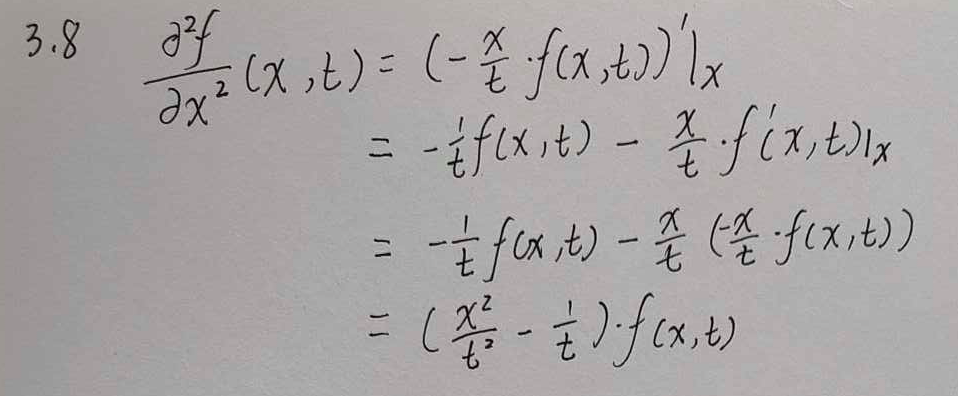 3.8 ∂²f/∂x² (x,t) = (-x/t · f(x,t))'|x
= -1/t f(x,t) - x/t · f'(x,t)|x
= -1/t f(x,t) - x/t (-x/t · f(x,t))
= (x²/t² - 1/t) · f(x,t)